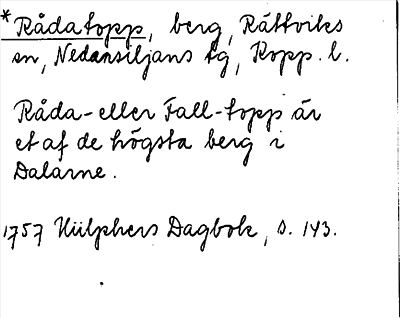 *Råda topp, berg, Rättviks
sn, Nedansiljans tg, Kopp. l.
Råda- eller Fall-topp är
et af de högsta berg i
Dalarne.
1757 Hülphers Dagbok, s. 143.